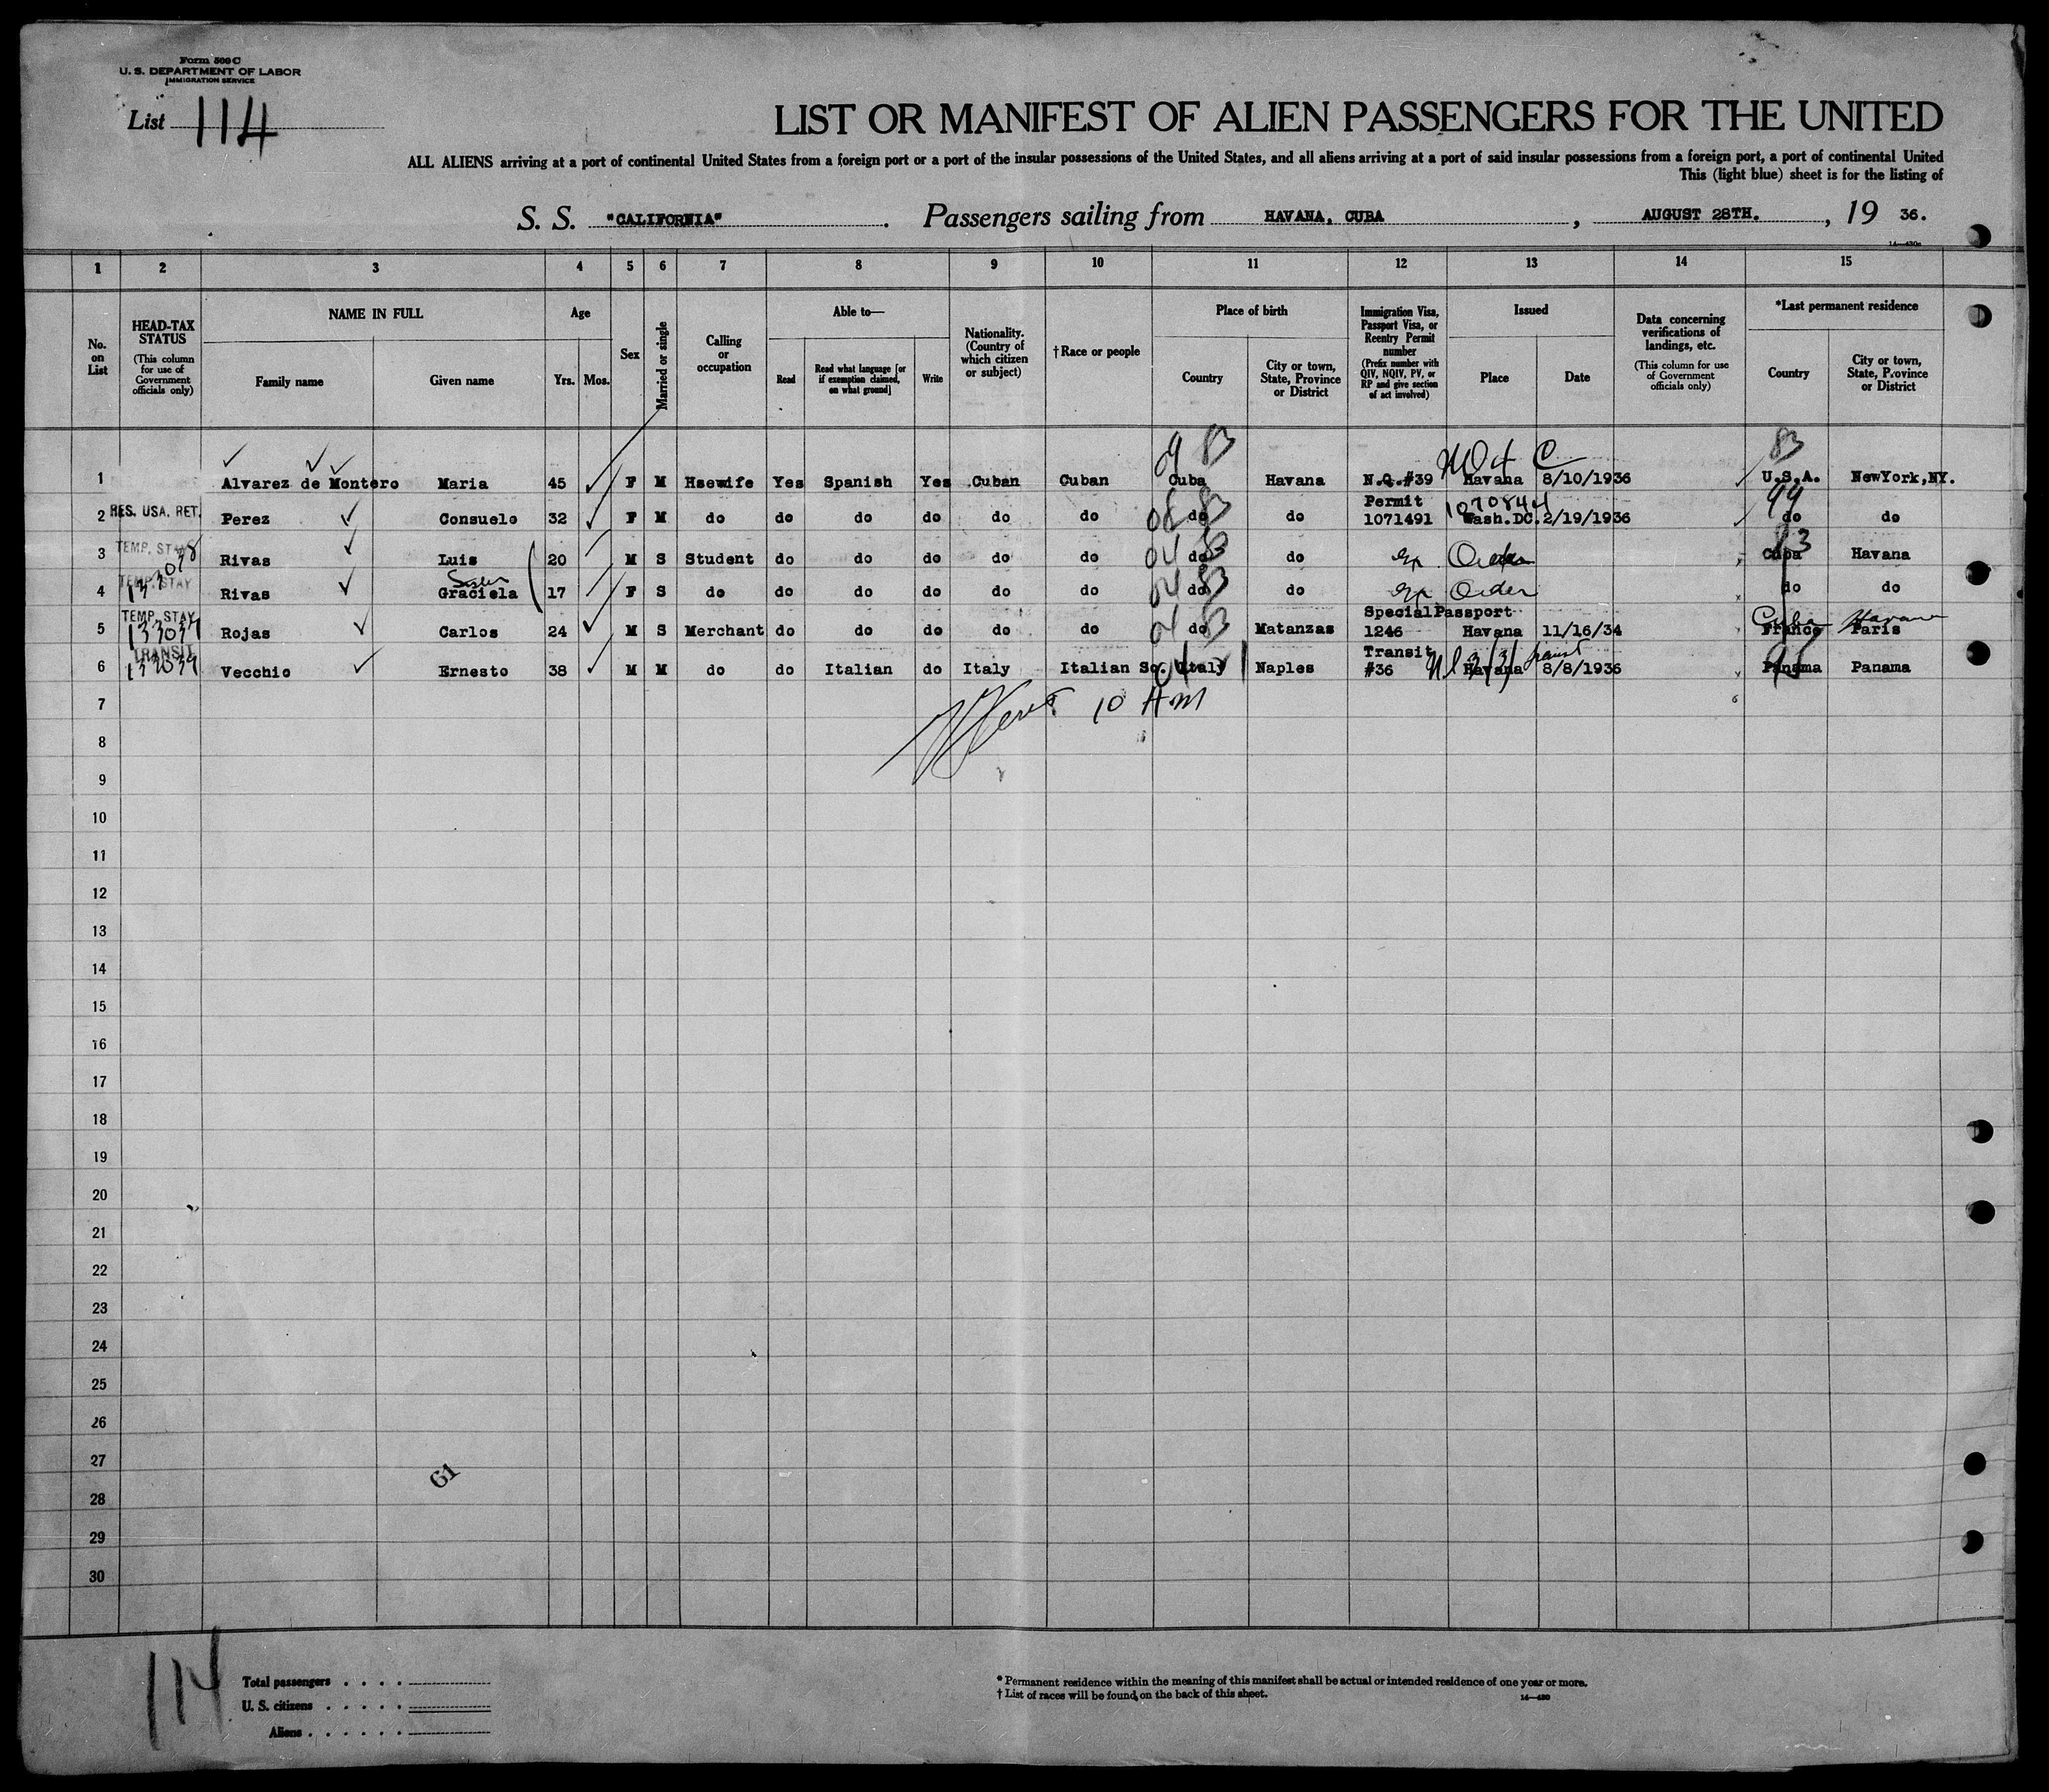 Form 500 C
U. S. DEPARTMENT OF LABOR
IMMIGRATION SERVICE
List 114
LIST OR MANIFEST OF ALIEN PASSENGERS FOR THE UNITED
ALL ALIENS arriving at a port of continental United States from a foreign port or a port of the insular possessions of the United States, and all aliens arriving at a port of said insular possessions from a foreign port, a port of continental United
This (light blue) sheet is for the listing of
S. S. "CALIFORNIA". Passengers sailing from HAVANA, CUBA, AUGUST 28TH., 19 36.
1 2 3 4 5 6 7 8 9 10 11 12 13 14 15
No. on List
HEAD-TAX STATUS (This column for use of Government officials only)
NAME IN FULL
Family name Given name
Age
Yrs. Mos.
Sex
Married or single
Calling or occupation
Able to—
Read Read what language [or if exemption claimed, on what ground] Write
Nationality. (Country of which citizen or subject)
†Race or people
Place of birth
Country City or town, State, Province or District
Immigration Visa, Passport Visa, or Reentry Permit number (Prefix number with QIV, NQIV, PV, or RP and give section of act involved)
Issued
Place Date
Data concerning verifications of landings, etc. (This column for use of Government officials only)
*Last permanent residence
Country City or town, State, Province or District
1 Alvarez de Montero Maria 45 F M Hsewife Yes Spanish Yes Cuban Cuban Cuba Havana N.Q.#39 Havana 8/10/1936 U.S.A. NewYork,NY.
2 RES. USA. RET. Perez Consuelo 32 F M do do do do do do do do Permit 1071491 1070844 Wash.DC. 2/19/1936 do do
3 TEMP. STAY Rivas Luis 20 M S Student do do do do do do do Ex Order Cuba Havana
4 TEMP. STAY 133038 Rivas Sister Graciela 17 F S do do do do do do do do Ex Order do do
5 TEMP. STAY 133034 Rojas Carlos 24 M S Merchant do do do do do do Matanzas Special Passport 1246 Havana 11/16/34 France Paris Cuba Havana
6 TRANSIT 133039 Vecchio Ernesto 38 M M do do Italian do Italy Italian So. Italy Naples Transit #36 Havana 8/8/1936 Panama Panama
10 AM
7
8
9
10
11
12
13
14
15
16
17
18
19
20
21
22
23
24
25
26
27
28
29
30
61
114
Total passengers
U. S. citizens
Aliens
* Permanent residence within the meaning of this manifest shall be actual or intended residence of one year or more.
† List of races will be found on the back of this sheet.
14—430